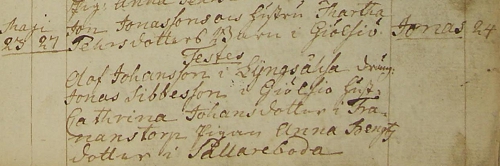 Maji Jon Jonassons ac Hustru Martha
23 27 Pehrsdotters Barn i Giölsiö Jonas 24
Testes
Olof Johansson i Ljungsåsa dräng
Jonas Sibbesson i Giölsiö Hust
Cathrina Johansdotter i Tra
nanstorp Pigan Anna Bengts
dotter i Pallareboda